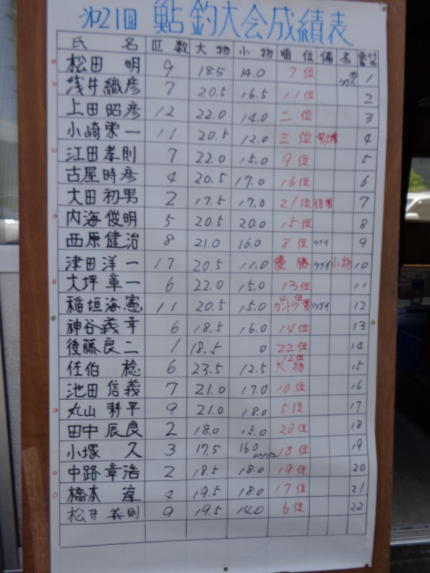 第21回 鮎釣大会成績表
氏 名 匹数 大物 小物 順位 備考 受付
松田 明 9 18.5 14.0 7位 1
浅井織彦 7 20.5 16.5 11位 2
上田昭彦 12 22.0 14.0 二位 3
小崎栄一 11 20.5 12.0 三位 4
江田孝則 7 22.0 15.0 9位 5
古屋時彦 4 20.5 17.0 16位 6
大田初男 2 17.5 17.0 21位 7
内海俊明 5 20.5 20.0 15位 8
西原健治 8 21.0 16.0 8位 ウグイ 9
津田洋一 17 20.5 11.0 優勝 ウグイ 小物 10
大坪章一 6 22.0 15.0 13位 11
稲垣海憲 11 20.5 15.0 ウグイ 12
神谷義幸 6 18.5 16.0 14位 13
後藤良二 1 18.5 0 22位 14
佐伯 稔 6 23.5 12.5 12位 大物 15
池田信義 7 21.0 17.0 10位 16
丸山耕平 9 21.0 18.0 5位 17
田中辰良 2 18.0 15.0 20位 18
小塚 久 3 17.5 16.0 18位 19
中路章浩 2 18.5 18.0 19位 20
橋本 4 19.5 18.0 17位 21
松井義則 9 19.5 14.0 6位 22